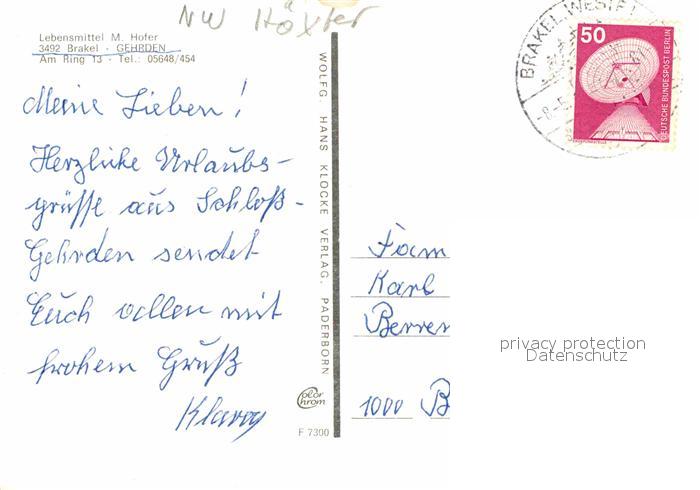 NW Höxter
Lebensmittel M. Hofer
3492 Brakel - GEHRDEN
Am Ring 13 - Tel.: 05648/454
Meine Lieben!
Herzliche Urlaubs-
grüsse aus Schloß-
Gehrden sendet
Euch allen mit
frohem Gruß
WOLFG. HANS KLOCKE VERLAG, PADERBORN
color
chrom
F 7300
BRAKEL, WESTF
-8.-5
50
DEUTSCHE BUNDESPOST BERLIN
Fam
Karl
1000 B
privacy protection
Datenschutz